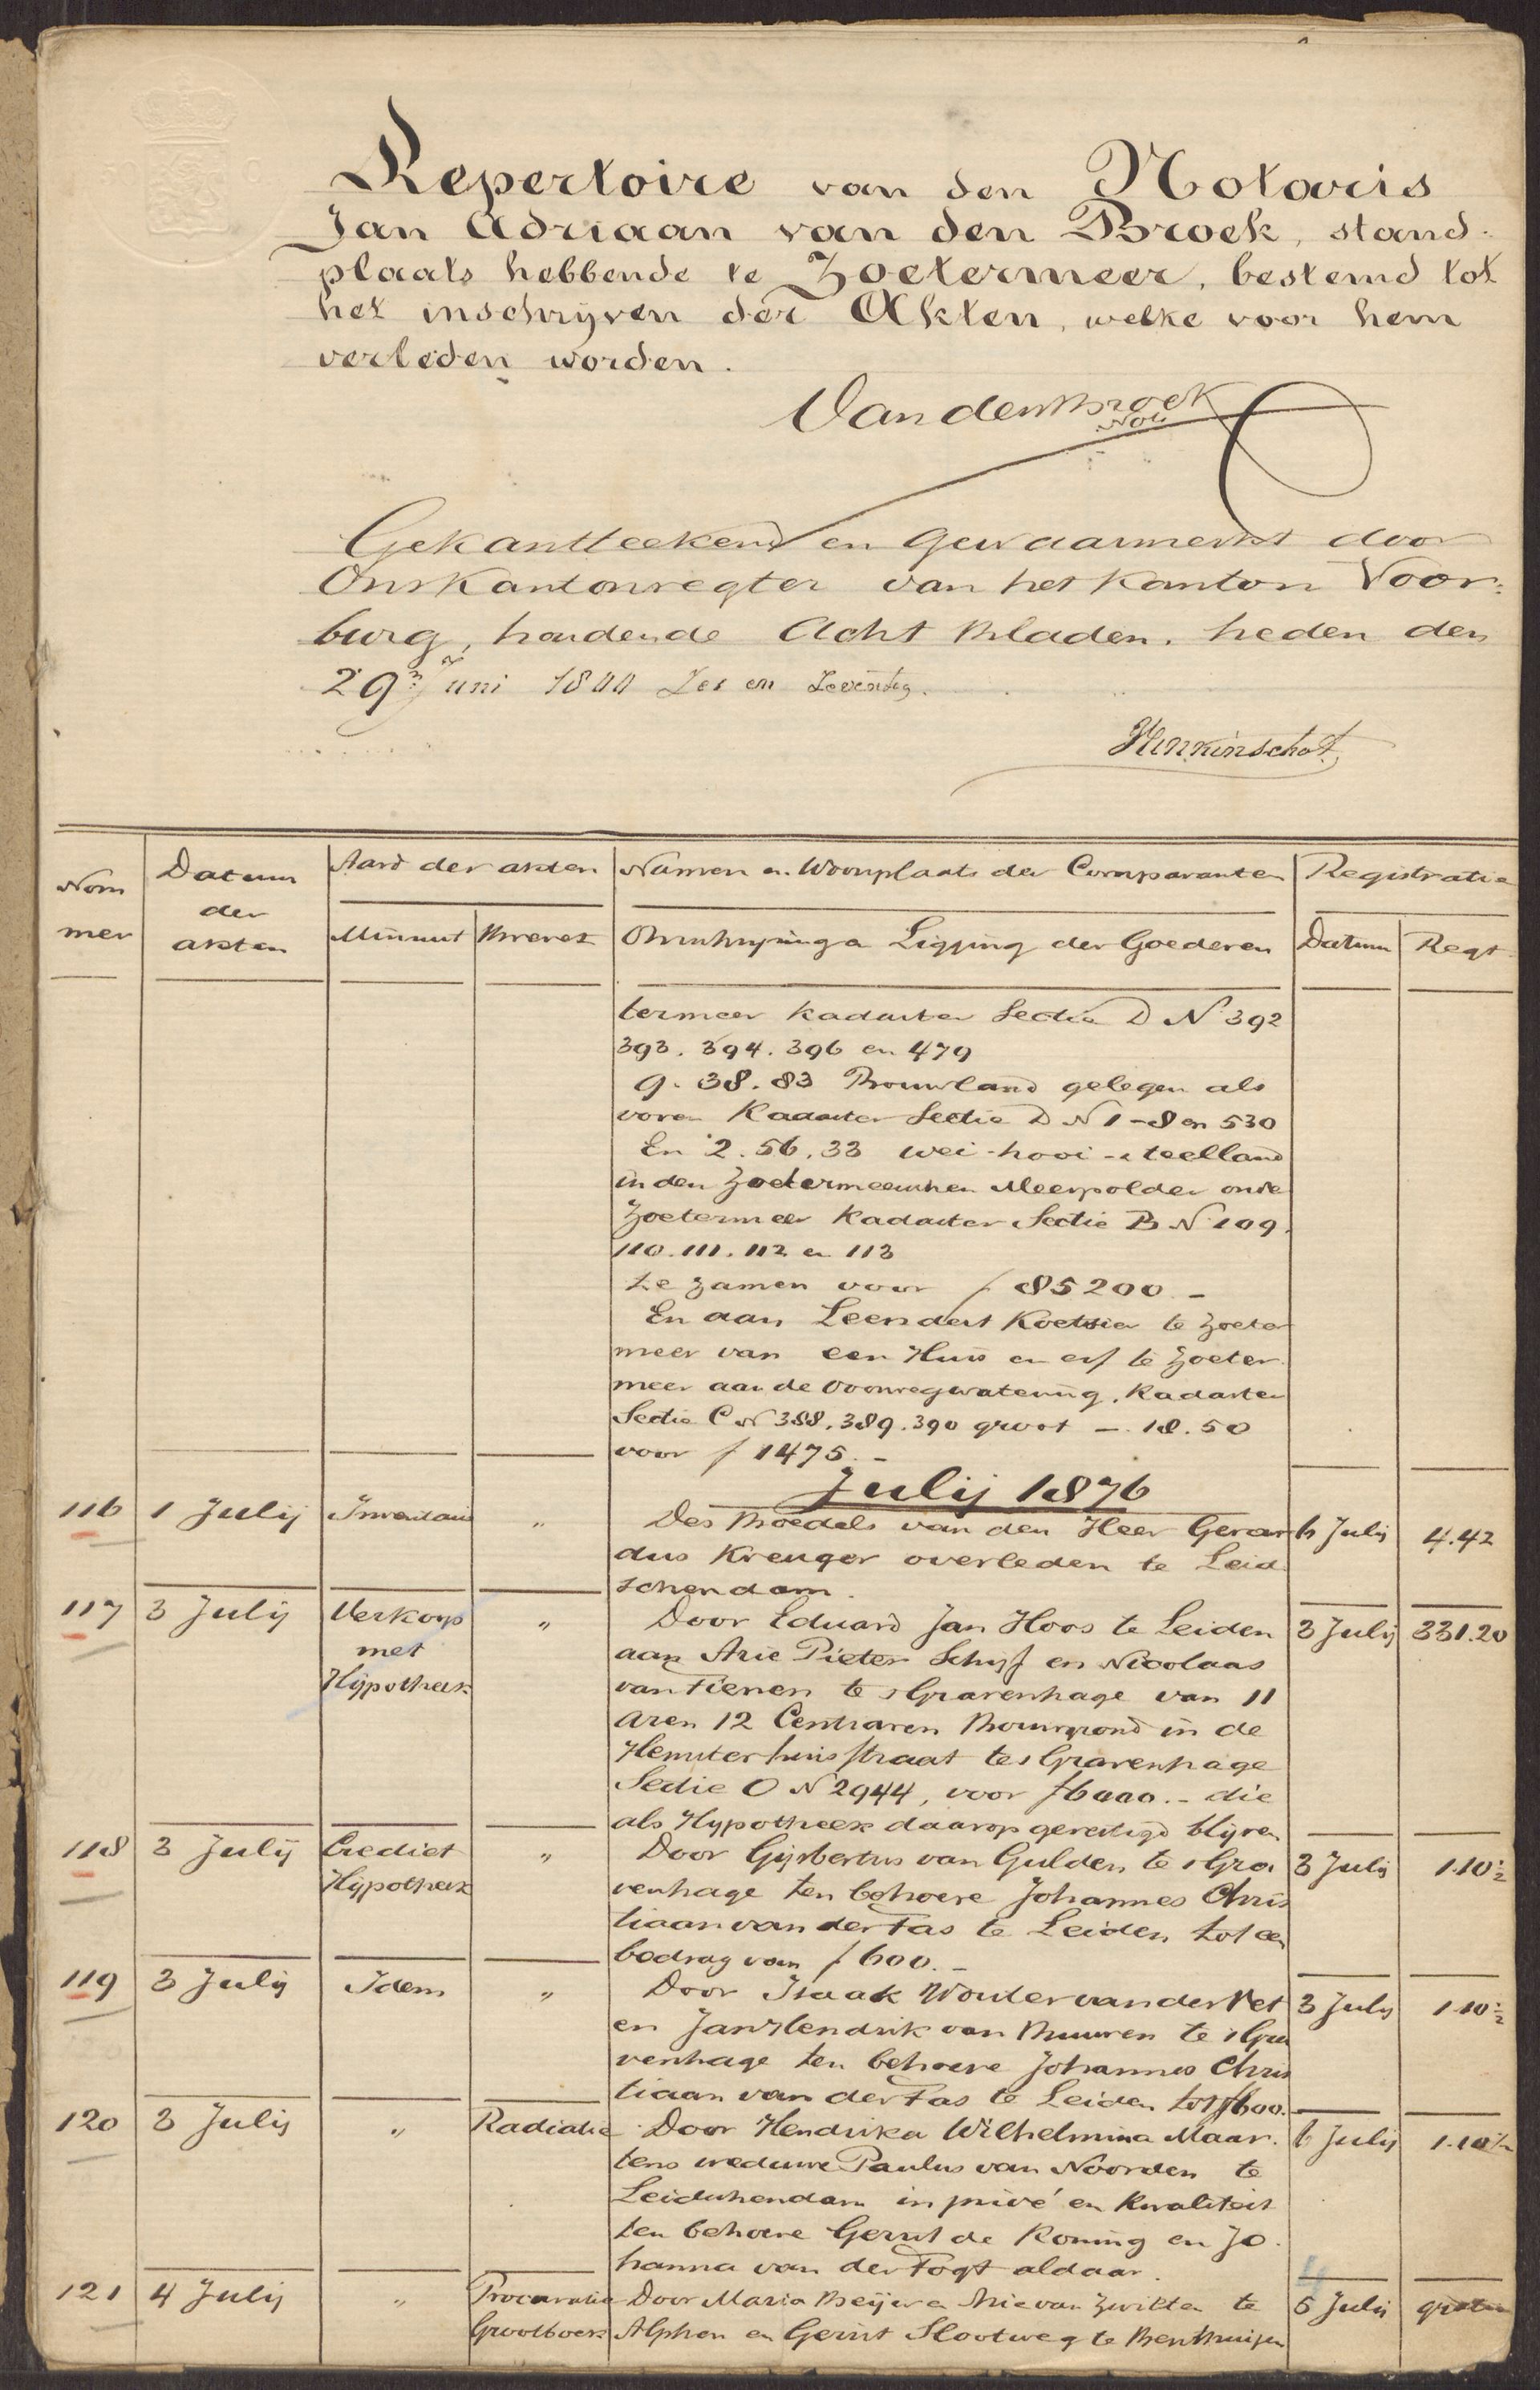 Repertoire van den Notaris
Jan Adriaan van den Broek, stand-
plaats hebbende te Zoetermeer, bestemd tot
het inschrijven der Akten, welke voor hem
verleden worden.
Van den Broek
Nots
Gekantteekend en gewaarmerkt door
Ons Kantonregter van het Kanton Voor-
burg, houdende Acht Bladen, heden den
29n Juni 1800 Zes en Zeventig.
Nom
mer
Datum
der
akten
Aard der akten
Minuut
Brevet
Namen en Woonplaats der Comparanten
Omschrijving en Ligging der Goederen
Registratie
Datum
Regt
termeer Kadaster Sectie D N 392
393. 394. 396 en 479
9. 38. 83 Bouwland gelegen als
voren Kadaster Sectie D N 1-8 en 530
En 2. 56. 33 wei- hooi- en teelland
in den Zoetermeerschen Meerpolder onder
Zoetermeer Kadaster Sectie B N 109.
110. 111. 112 en 113
te zamen voor f 85200.-
En aan Leendert Koetsier te Zoeter
meer van een Huis en erf te Zoeter
meer aan de Voorwegwatering, Kadaster
Sectie C N 388. 389. 390 groot -. 18. 50
voor f 1475.-
Julij 1876
116 1 Julij Inventaris " Des Boedels van den Heer Gerar 6 Julij 4.42
dus Kreuger overleden te Leid
schendam.
117 3 Julij Verkoop " Door Eduard Jan Hoos te Leiden 3 Julij 331.20
met aan Arie Pieter Schijf en Nicolaas
Hijpotheek van Tienen te sGravenhage van 11
Aren 12 Centiaren Bouwgrond in de
Hemsterhuisstraat te sGravenhage
Sectie O N 2944, voor f 6000.- die
als Hypotheek daarop gevestigd blijven
118 3 Julij Crediet " Door Gijsbertus van Gulden te sGra 3 Julij 1.10½
Hijpotheek venhage ten behoeve Johannes Chris
tiaan van der Tas te Leiden tot een
bedrag van f 600.-
119 3 Julij Idem " Door Isaak Wouter van der Vet 3 Julij 1.10½
en Jan Hendrik van Buuren te sGra
venhage ten behoeve Johannes Chris
tiaan van der Tas te Leiden tot f 600.
120 3 Julij " Radiatie Door Hendrika Wilhelmina Maar. 6 Julij 1.10½
tens weduwe Paulus van Noorden te
Leidschendam in privé en kwaliteit
ten behoeve Gerrit de Koning en Jo.
hanna van der Togt aldaar.
121 4 Julij " Procuratie Door Maria Beijer en Arie van Zwieten te 5 Julij gratis
Grootboek Alphen en Gerrit Slootweg te Benthuizen